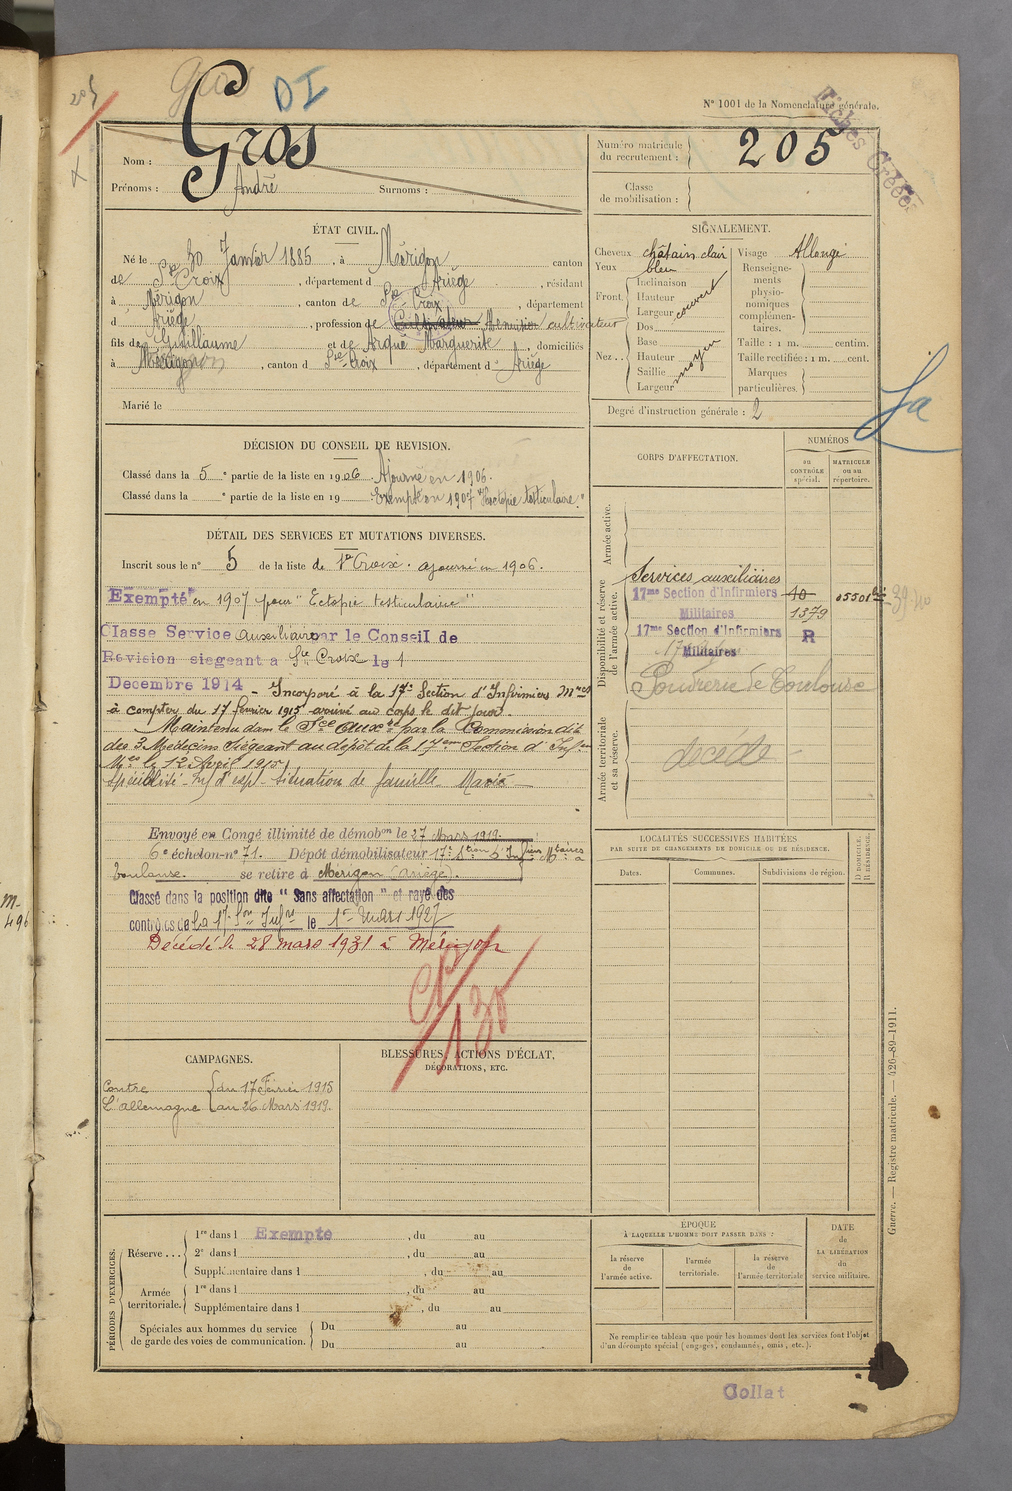 Gros
205
DI
N° 1001 de la Nomenclature générale.
Fiches Créées
Nom : Gros
Prénoms : André Surnoms :
Numéro matricule du recrutement : 205
Classe de mobilisation :
ÉTAT CIVIL.
Né le 30 Janvier 1885, à Mérigon canton
de Ste Croix, département d Ariège, résidant
à Mérigon, canton de Ste Croix, département
d Ariège, profession de Cultivateur Menuisier cultivateur
fils de Guillaume et de Arqué Marguerite, domiciliés
à Mérigon, canton d Ste Croix, département d Ariège
Marié le
SIGNALEMENT.
Cheveux châtain clair
Yeux bleu
Front Inclinaison
Hauteur
Largeur couvert
Nez Dos
Base
Hauteur
Saillie
Largeur moyen
Visage Allongé
Renseignements physionomiques complémentaires.
Taille : 1 m. centim.
Taille rectifiée : 1 m. cent.
Marques particulières.
Degré d'instruction générale : 2
DÉCISION DU CONSEIL DE REVISION.
Classé dans la 5e partie de la liste en 1906 Ajourné en 1906.
Classé dans la e partie de la liste en 19 Exempté en 1907 "Ectopie testiculaire".
DÉTAIL DES SERVICES ET MUTATIONS DIVERSES.
Inscrit sous le n° 5 de la liste de Ste Croix. ajourné en 1906.
Exempté en 1907 pour "Ectopie testiculaire"
Classe Service auxiliaire par le Conseil de
Révision siegeant a Ste Croix le 1
Decembre 1914 - Incorporé à la 17e Section d'Infirmiers Mres
à compter du 17 février 1915 arrivé au corps le dit jour.
Maintenu dans le Sce auxre par la Commission dite
des 3 Médecins siégeant au dépôt de la 17eme Section d'Infers
Mres le 12 Avril 1915
Spécialité - Inf d'expl - Situation de famille Marié
Envoyé en Congé illimité de démobon le 27 Mars 1919.
6e échelon-n° 71. Dépôt démobilisateur 17e Stion d'Infiers Mtaires à
Toulouse. se retire à Merigon (Ariège).
Classé dans la position dite "Sans affectation" et rayé des
contrôles de la 17e Son Infrs le 1er Mars 1927
Décédé le 28 mars 1931 à Mérigon
CORPS D'AFFECTATION.
NUMÉROS
au CONTRÔLE spécial.
MATRICULE ou au répertoire.
Armée active.
Disponibilité et réserve de l'armée active.
Services auxiliaires
17me Section d'Infirmiers Militaires 10 1379 05501
17me Section d'Infirmiers Militaires R
Poudrerie de Toulouse
Armée territoriale et sa réserve.
décédé
LOCALITÉS SUCCESSIVES HABITÉES
PAR SUITE DE CHANGEMENTS DE DOMICILE OU DE RÉSIDENCE.
Dates.
Communes.
Subdivisions de région.
D. DOMICILE. R. RÉSIDENCE.
CAMPAGNES.
Contre L'allemagne
du 17 Février 1915
au 26 Mars 1919.
BLESSURES, ACTIONS D'ÉCLAT,
DÉCORATIONS, ETC.
PÉRIODES D'EXERCICES.
Réserve ... 1re dans l Exempte, du au
2e dans l, du au
Supplémentaire dans l, du au
Armée territoriale. 1re dans l, du au
Supplémentaire dans l, du au
Spéciales aux hommes du service Du au
de garde des voies de communication. Du au
ÉPOQUE
À LAQUELLE L'HOMME DOIT PASSER DANS :
la réserve de l'armée active.
l'armée territoriale.
la réserve de l'armée territoriale
DATE de LA LIBÉRATION du service militaire.
Ne remplir ce tableau que pour les hommes dont les services font l'objet
d'un décompte spécial (engagés, condamnés, omis, etc.).
Guerre. — Registre matricule. — 426-89-1911.
Collat